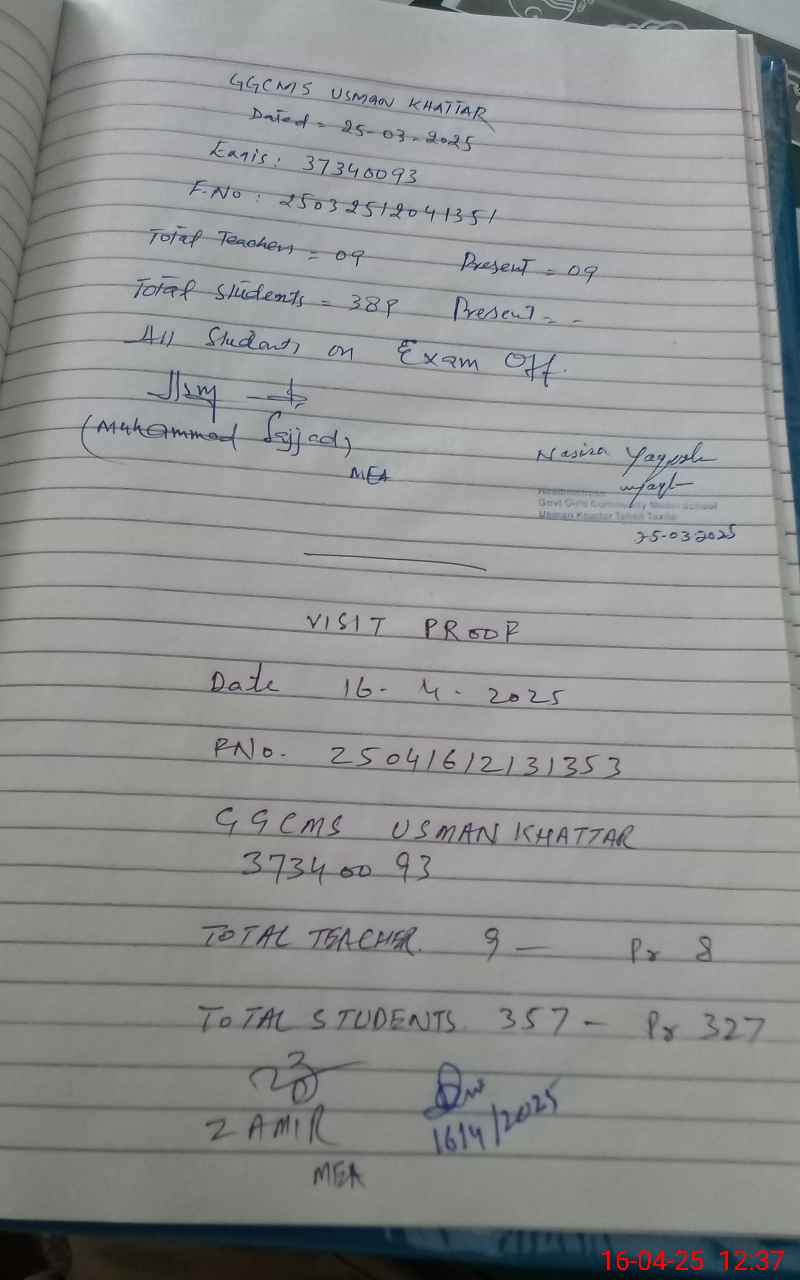 GGCMS USMAN KHATTAR
Dated = 25-03-2025
Emis: 37340093
F.No: 25032512041351
Total Teachers = 09 Present = 09
Total Students = 389 Present = -
All Students on Exam Off.
(Muhammad Sajjad)
MEA
Nasira
Govt Girls Community Model School
Usman Khattar Tehsil Taxila
25-03-2025
VISIT PROOF
Date 16-4-2025
FNo. 25041612131353
GGCMS USMAN KHATTAR
37340093
TOTAL TEACHER. 9 — Pr 8
TOTAL STUDENTS. 357 - Pr 327
ZAMIR
16/4/2025
MEA
16-04-25 12:37